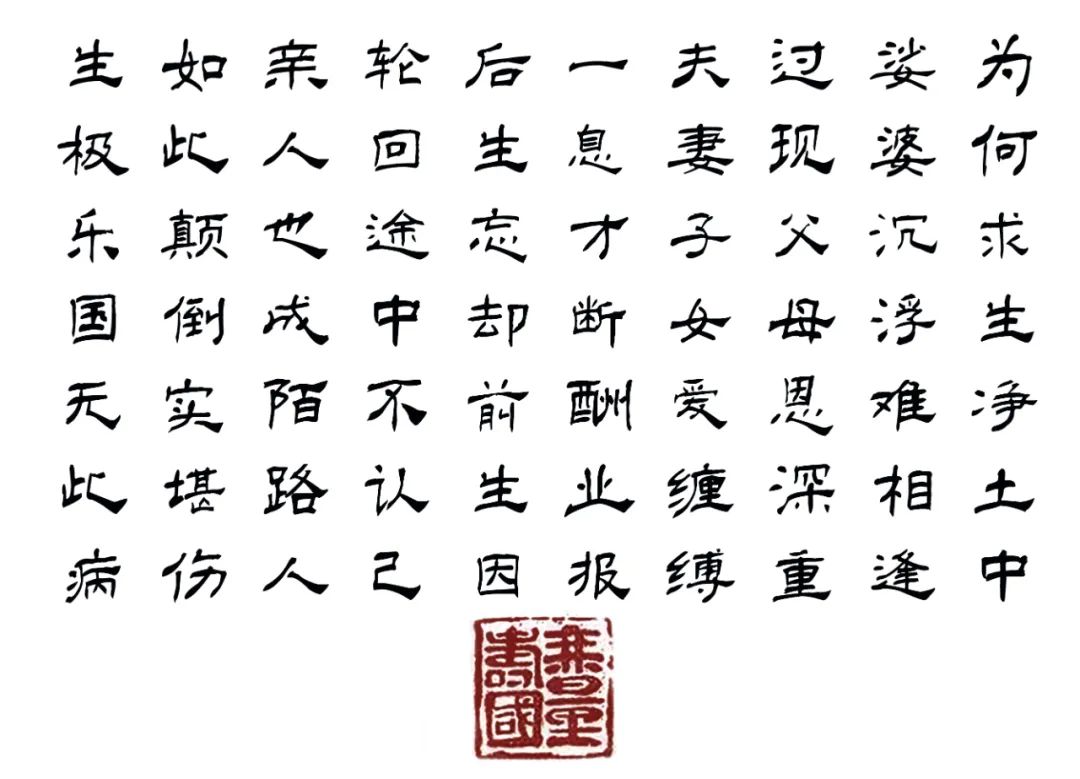 为何求生净土中
娑婆沉浮难相逢
过现父母恩深重
夫妻子女爱缠缚
一息才断酬业报
后生忘却前生因
轮回途中不认己
亲人也成陌路人
如此颠倒实堪伤
生极乐国无此病